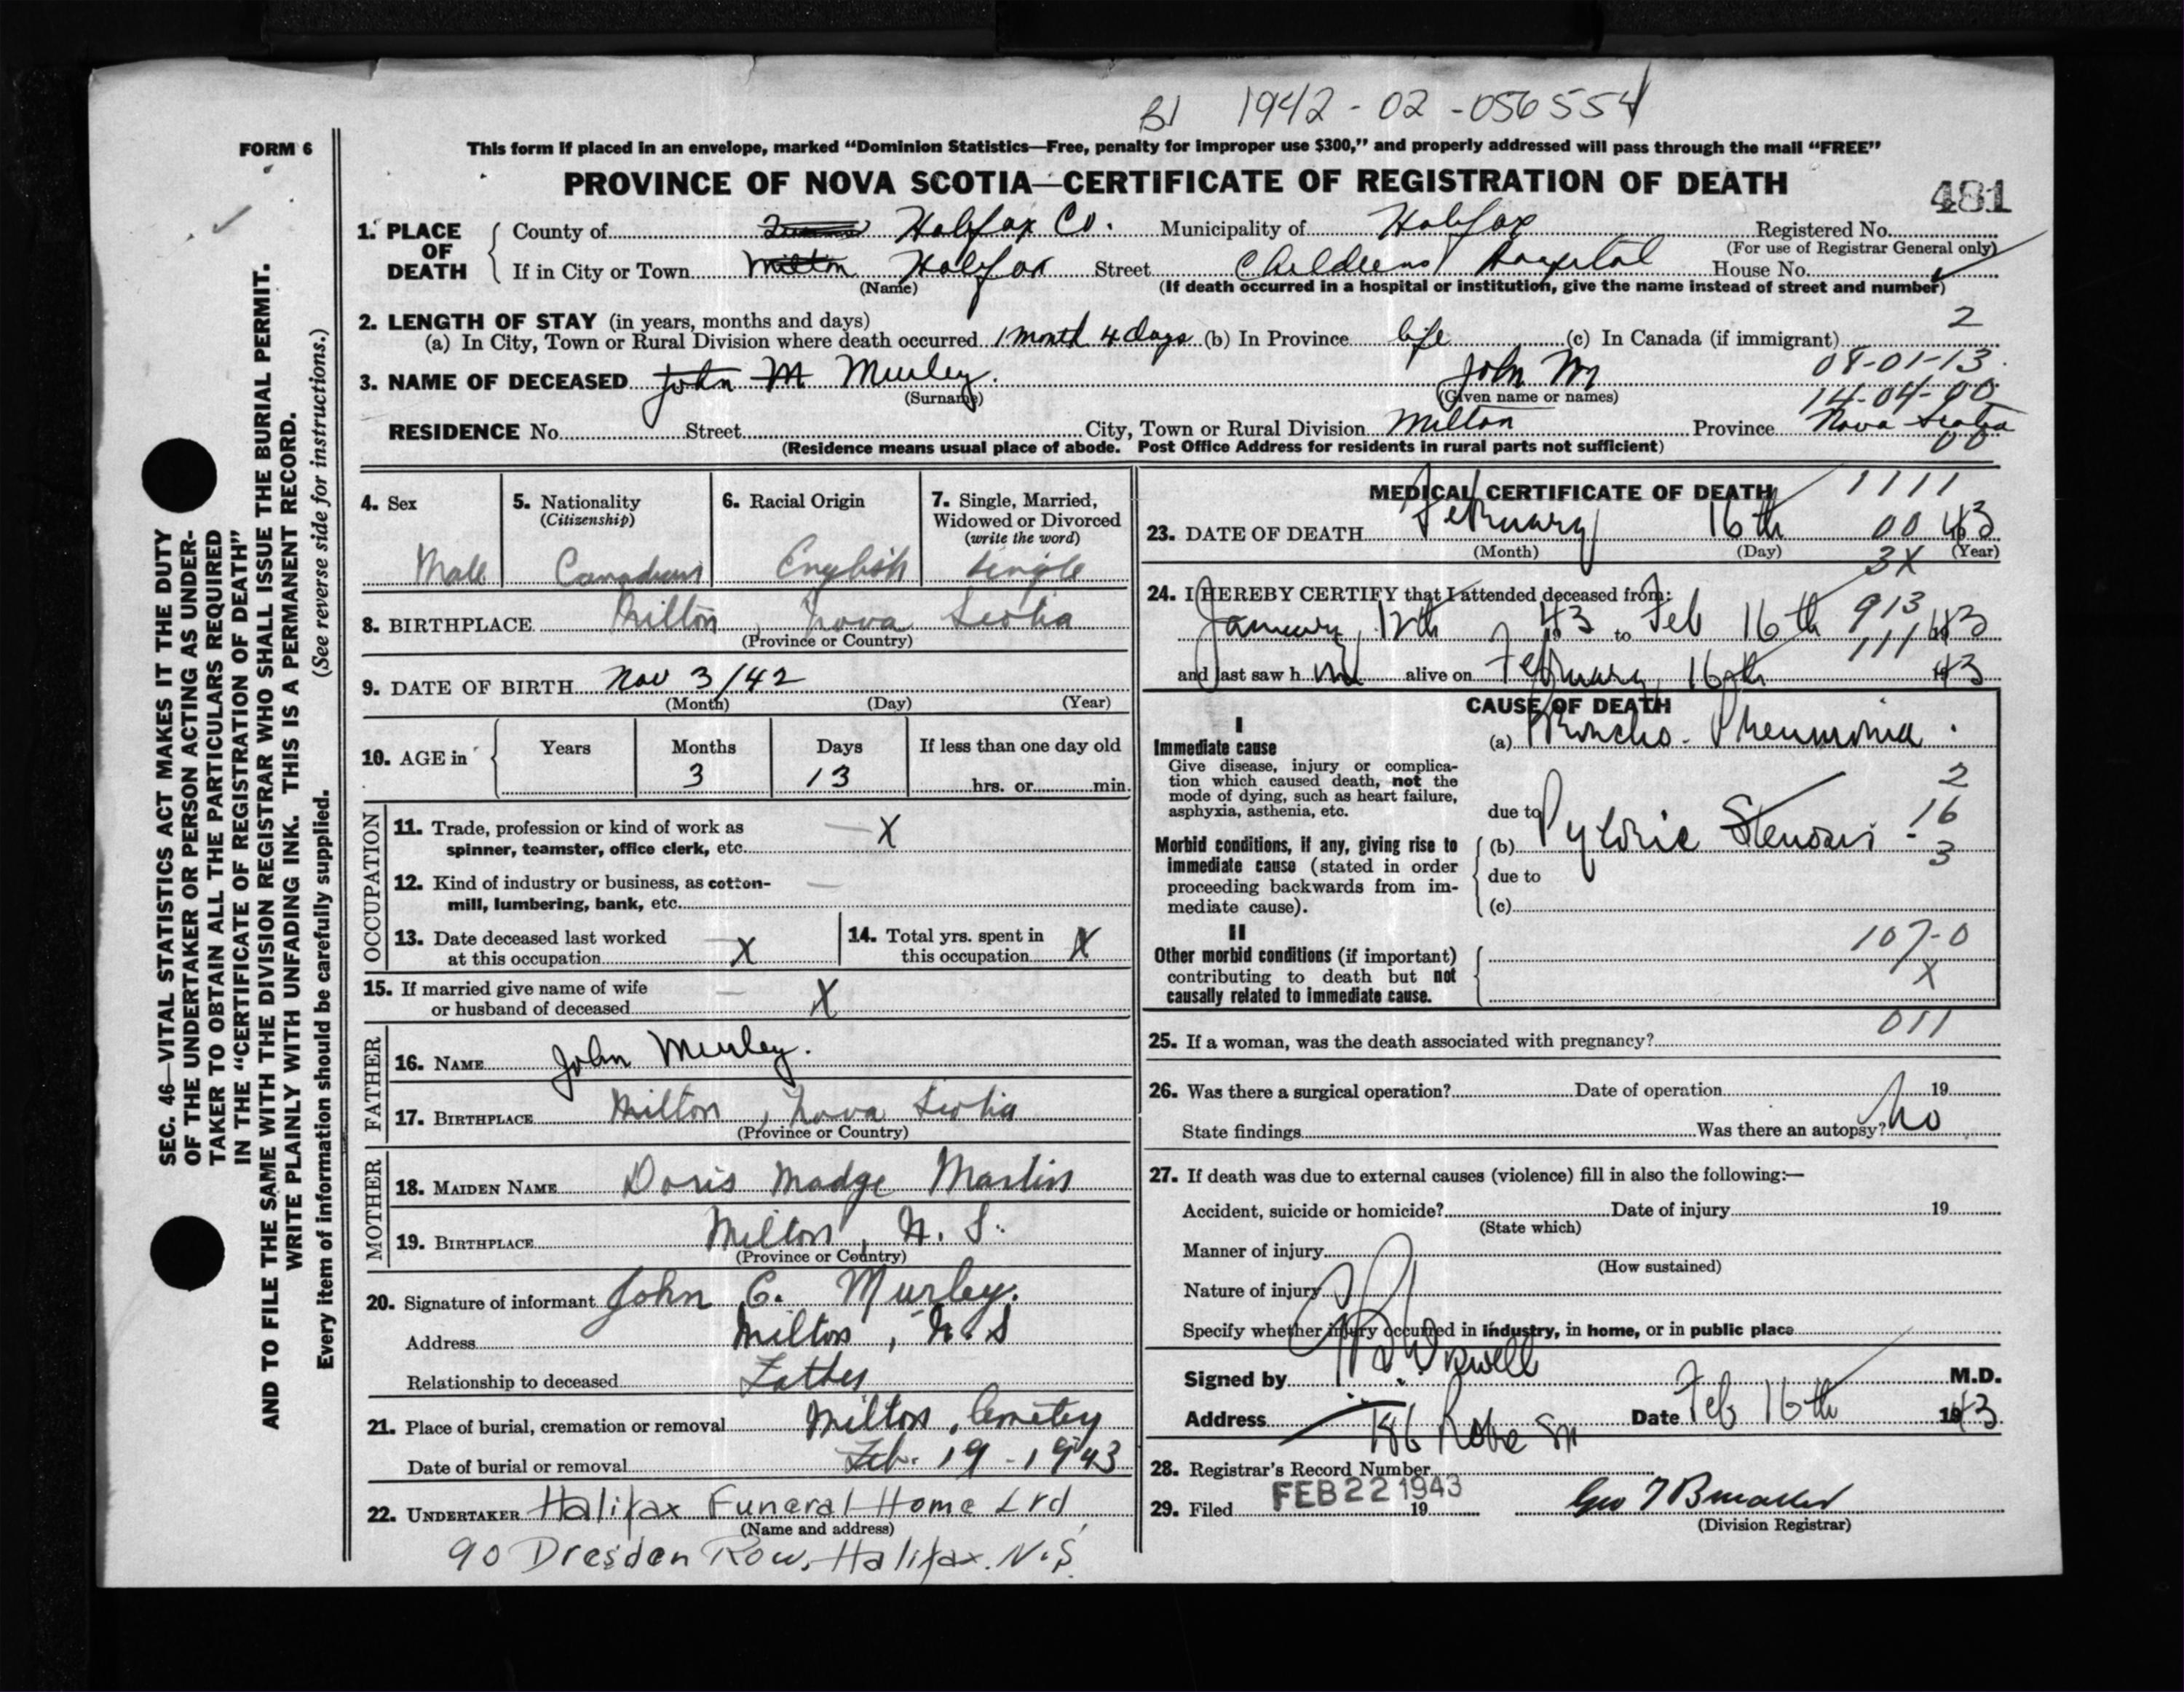 BI 1942-02-056554
FORM 6
This form if placed in an envelope, marked "Dominion Statistics—Free, penalty for improper use $300," and properly addressed will pass through the mail "FREE"
PROVINCE OF NOVA SCOTIA—CERTIFICATE OF REGISTRATION OF DEATH
481
1. PLACE OF DEATH
County of Halifax Co. Municipality of Halifax Registered No.
(For use of Registrar General only)
If in City or Town Milton Halifax Street Childrens Hospital House No.
(Name) (If death occurred in a hospital or institution, give the name instead of street and number)
2. LENGTH OF STAY (in years, months and days)
2
(a) In City, Town or Rural Division where death occurred 1 month 4 days (b) In Province life (c) In Canada (if immigrant)
08-01-13
3. NAME OF DECEASED John M Murley. John M
(Surname) (Given name or names)
14-04-00
RESIDENCE No. Street City, Town or Rural Division Milton Province Nova Scotia
00
(Residence means usual place of abode. Post Office Address for residents in rural parts not sufficient)
4. Sex
Male
5. Nationality
(Citizenship)
Canadian
6. Racial Origin
English
7. Single, Married,
Widowed or Divorced
(write the word)
Single
8. BIRTHPLACE Milton, Nova Scotia
(Province or Country)
9. DATE OF BIRTH Nov 3/42
(Month) (Day) (Year)
10. AGE in
Years Months Days If less than one day old
3 13 hrs. or min.
OCCUPATION
11. Trade, profession or kind of work as
spinner, teamster, office clerk, etc. — X
12. Kind of industry or business, as cotton-
mill, lumbering, bank, etc. —
13. Date deceased last worked
at this occupation — X
14. Total yrs. spent in
this occupation X
15. If married give name of wife
or husband of deceased — X
FATHER
16. NAME John Murley.
17. BIRTHPLACE Milton, Nova Scotia
(Province or Country)
MOTHER
18. MAIDEN NAME Doris Madge Martin
19. BIRTHPLACE Milton, N. S.
(Province or Country)
20. Signature of informant John C. Murley.
Address Milton, N.S
Relationship to deceased Father
21. Place of burial, cremation or removal Milton, Cemetey
Date of burial or removal Feb. 19 - 1943
22. UNDERTAKER Halifax Funeral Home Ltd,
(Name and address)
90 Dresden Row, Halifax. N.S.
MEDICAL CERTIFICATE OF DEATH
1111
23. DATE OF DEATH February 16th 00 43
(Month) (Day) (Year)
3X
24. I HEREBY CERTIFY that I attended deceased from:
913
January, 12th 43 to Feb 16th 1943
111
and last saw him alive on February, 16th 1943
CAUSE OF DEATH
I
Immediate cause
Give disease, injury or complica-
tion which caused death, not the
mode of dying, such as heart failure,
asphyxia, asthenia, etc.
(a) Broncho-Pneumonia.
2
due to
16
Morbid conditions, if any, giving rise to
immediate cause (stated in order
proceeding backwards from im-
mediate cause).
(b) Pyloric Stenosis -
3
due to
(c)
II
Other morbid conditions (if important)
contributing to death but not
causally related to immediate cause.
107-0
X
011
25. If a woman, was the death associated with pregnancy?
26. Was there a surgical operation? Date of operation 19
State findings Was there an autopsy? No
27. If death was due to external causes (violence) fill in also the following:—
Accident, suicide or homicide? Date of injury 19
(State which)
Manner of injury
(How sustained)
Nature of injury
Specify whether injury occurred in industry, in home, or in public place
Signed by M.D.
Address 186 Date Feb 16th 1943
28. Registrar's Record Number
29. Filed FEB 22 1943 19
(Division Registrar)
SEC. 46—VITAL STATISTICS ACT MAKES IT THE DUTY
OF THE UNDERTAKER OR PERSON ACTING AS UNDER-
TAKER TO OBTAIN ALL THE PARTICULARS REQUIRED
IN THE "CERTIFICATE OF REGISTRATION OF DEATH"
AND TO FILE THE SAME WITH THE DIVISION REGISTRAR WHO SHALL ISSUE THE BURIAL PERMIT.
WRITE PLAINLY WITH UNFADING INK. THIS IS A PERMANENT RECORD.
Every item of information should be carefully supplied. (See reverse side for instructions.)